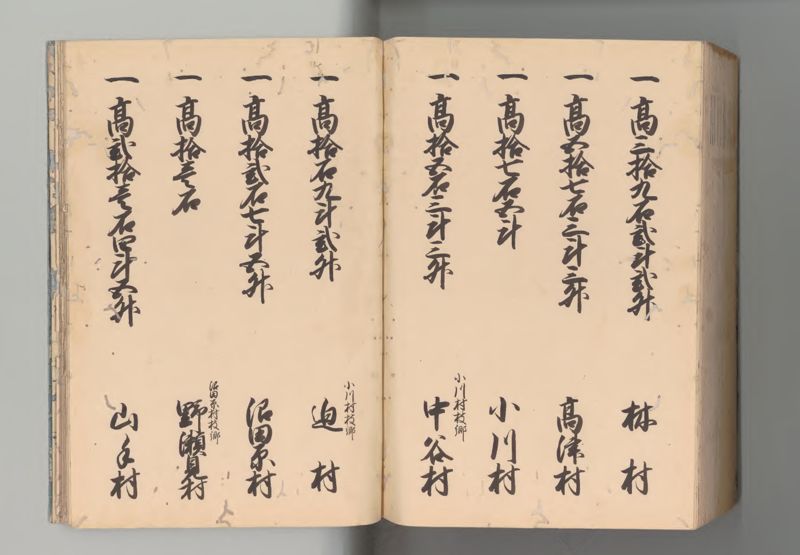 一高三拾九石弐斗弐升
林村
一高五拾七石三斗三升
高津村
一高拾七石五斗
小川村
一高拾五石三斗三升
小川村枝郷
中谷村
一高拾石九斗弐升
小川村枝郷
迫村
一高拾弐石七斗五升
沼田原村
一高拾壱石
沼田原村枝郷
野瀬貝村
一高弐拾壱石四斗五升
山手村